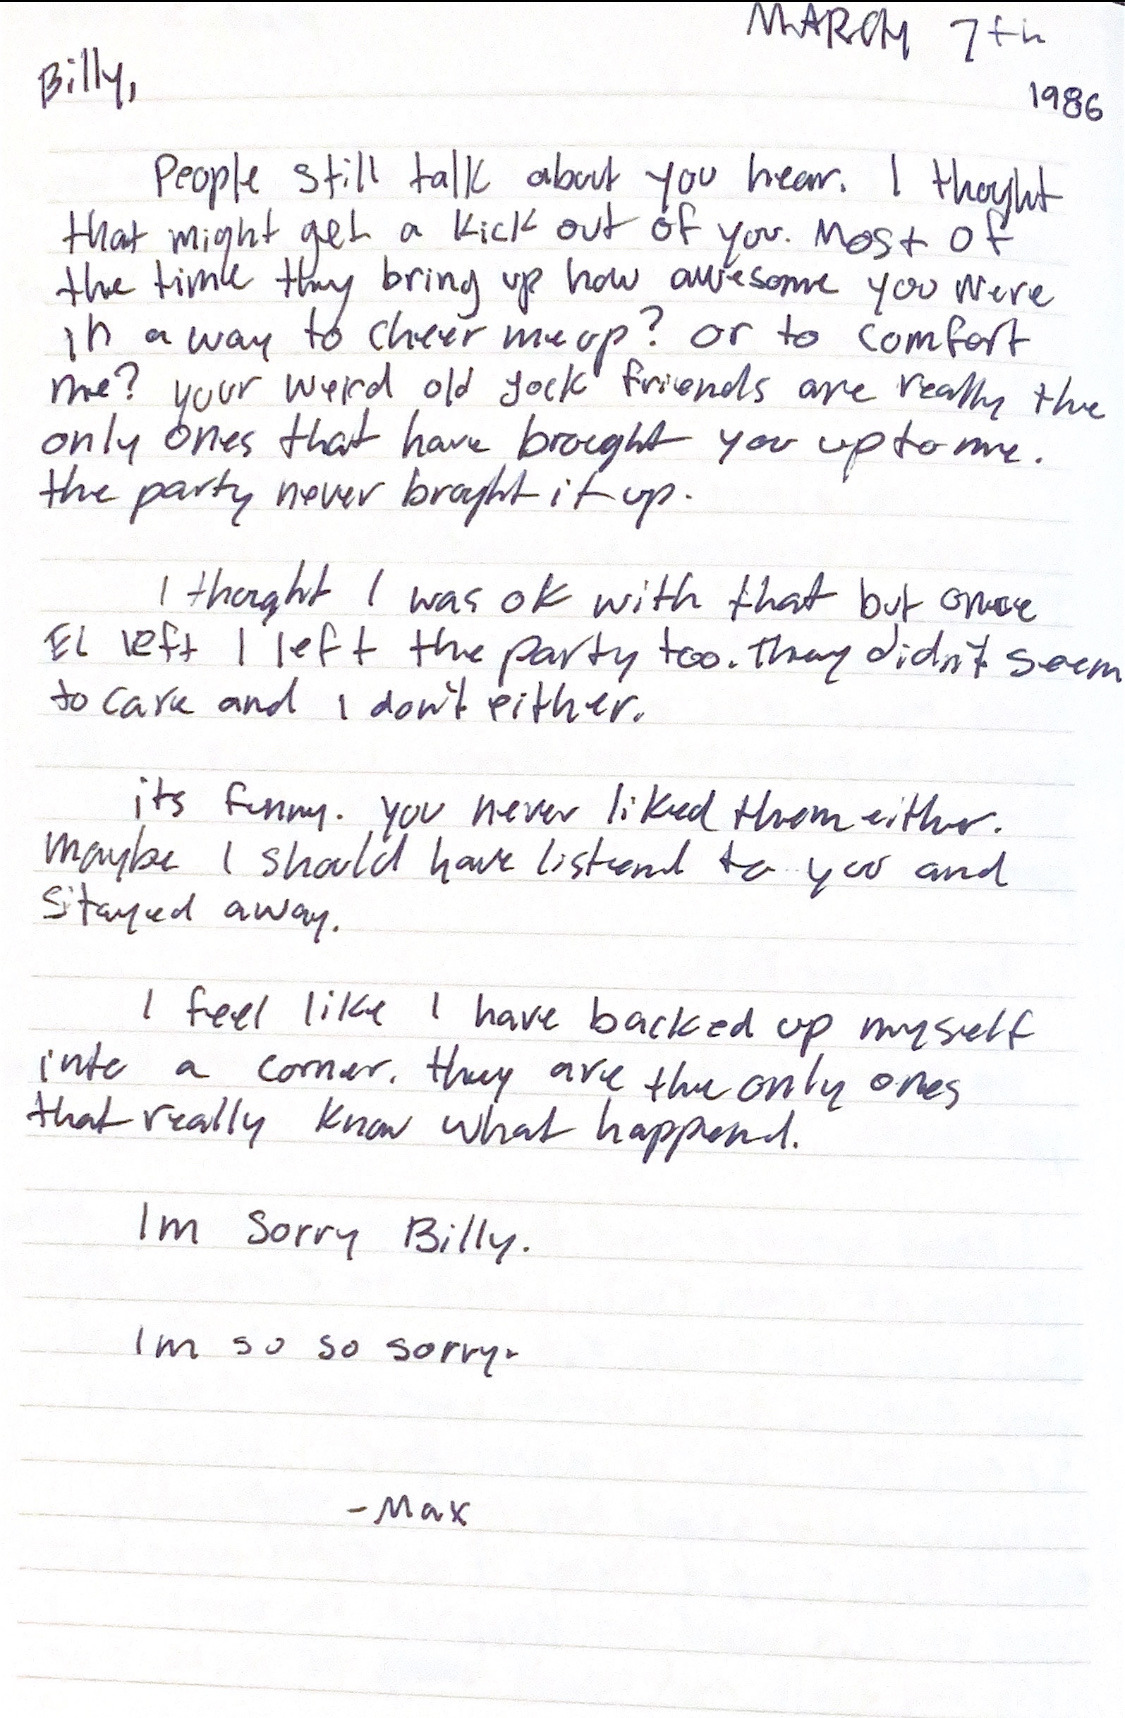 MARCH 7th
1986
Billy,
People still talk about you hear. I thoght
that might get a kick out of you. Most of
the time they bring up how awesome you were
in a way to cheer me up? or to comfort
me? your weird old jock friends are really the
only ones that have brought you up to me.
the party never broght it up.
I thoght I was ok with that but once
EL left I left the party too. They didn't seem
to care and I don't either.
its funny. you never liked them either.
Maybe I should have listend to you and
stayed away.
I feel like I have backed up myself
into a corner. they are the only ones
that really know what happend.
Im sorry Billy.
Im so so sorry.
-Max